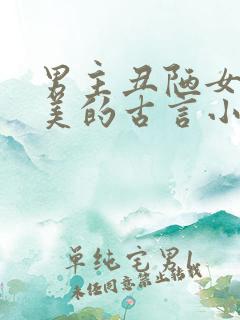 男主丑陋女
美的古言小
单纯宅男l
未经同意禁止转载